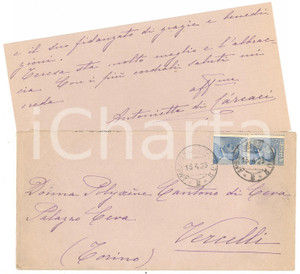 e il suo fidanzato di grazie e benedi
zioni.
Teresa sta molto meglio e l'abbrac
cia. Con i più cordiali saluti mi
creda
aff.ma
Antonietta di Carcaci
iCharta
Donna Polyxène Cantono di Ceva
Palazzo Ceva
(Torino)
Vercelli